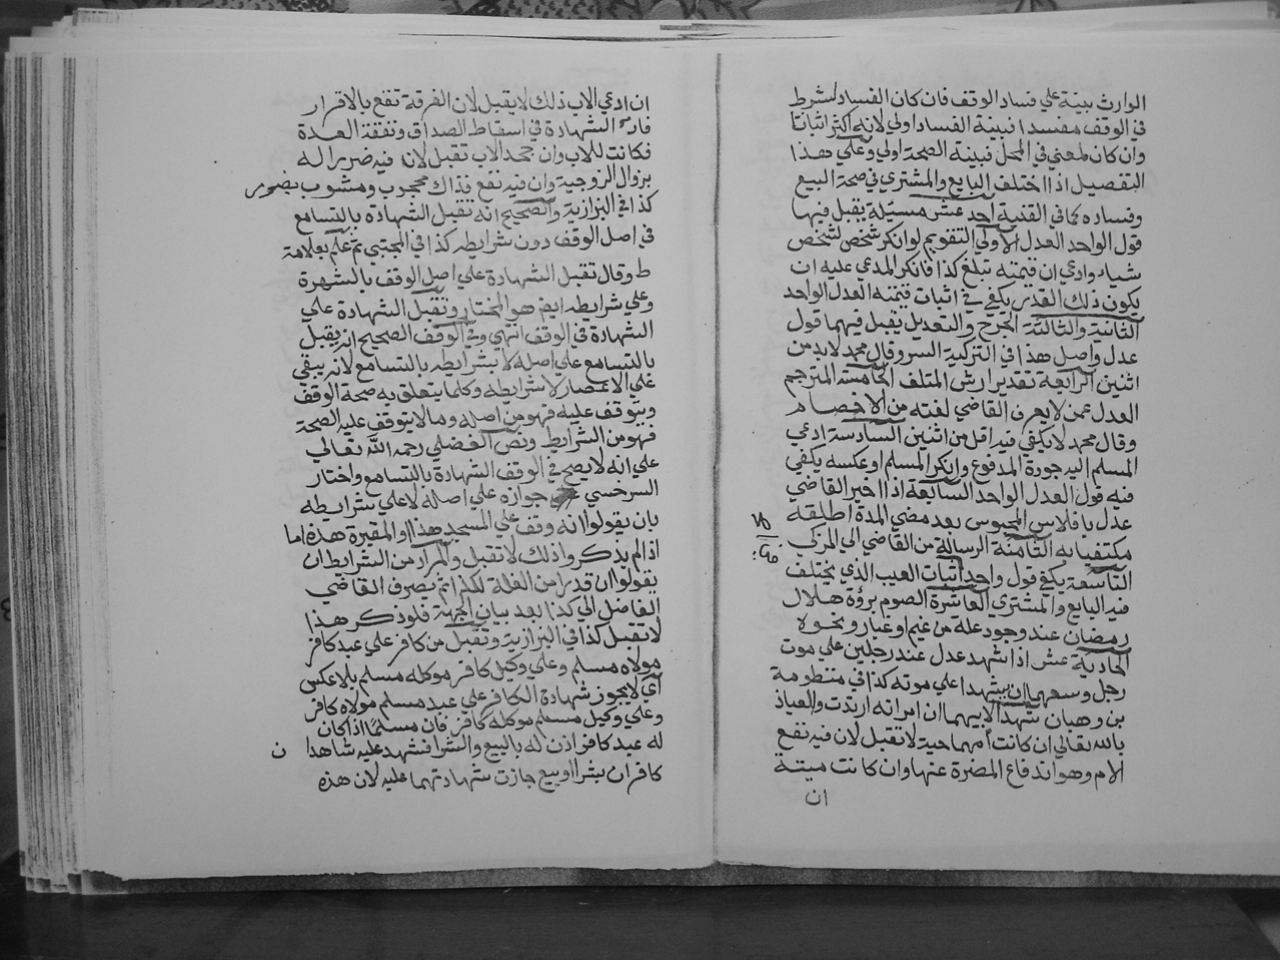 الوارث بينة علي فساد الوقف فان كان الفساد لشرط
في الوقف مفسد ا فبينة الفساد اولي لانه اكثر اثباتا
وان كان لمعني في المحل فبينة الصحة اولي وعلي هذا
التفصيل اذا اختلف البايع والمشتري في صحة البيع
وفساده كما في القنية احد عشر مسئلة يقبل فيها
قول الواحد العدل الاولي التقويم لو انكر شخص لشخص
شيا وادعي ان قيمته تبلغ كذا فانكر المدعي عليه ان
يكون ذلك القدر يكفي في اثبات قيمته العدل الواحد
الثانية والثالثة الجرح والتعديل يقبل فيهما قول
عدل واصل هذا في التزكية السر وقال محمد لابد من
اثنين الرابعة تقدير ارش المتلف الخامسة المترجم
العدل عمن لا يعرف القاضي لغته من الاخصام
وقال محمد لا يكفي فيه اقل من اثنين السادسة ادعي
المسلم اليه جودة المدفوع وانكر المسلم او عكسه يكفي
فيه قول العدل الواحد السابعة اذا اخبر القاضي
عدل بافلاس المحبوس بعد مضي المدة اطلقه
مكتفيا به الثامنة الرسالة من القاضي الي المزكي
التاسعة يكفي قول واحد اثبات العيب الذي يختلف
فيه البايع والمشتري العاشرة الصوم برؤة هلال
رمضان عند وجود علة من غيم او غبار ونحوه
الحادية عشر اذا شهد عدل عند رجلين علي موت
رجل وسعهما ان يشهدا علي موته كذا في منظومة
بن وهبان شهد الابيهما ان امرانه ارتدت والعياذ
بالله تعالي ان كانت امهما حية لا تقبل لان فيه نفع
الام وهو اندفاع المضرة عنها وان كانت ميتة
ان
ان ادعي الاب ذلك لا يقبل لان الفرقة تقع بالاقرار
الشهادة في اسقاط الصداق ونفقة العدة
فكانت للاب وان جحد الاب تقبل لانه فيه ضررا له
بزوال الزوجية وان فيه نفع فذاك محجوب ومشوب
كذا في البزازية والصحيح انه تقبل الشهادة بالتسامع
في اصل الوقف دون شرايطه كذا في المجتبي ثم علم بعلامة
ط وقال تقبل الشهادة علي اصل الوقف بالشهرة
وعلي شرايطه ايض هو المختار وتقبل الشهادة علي
الشهادة في الوقف انتهي وفي الوقف الصحيح انه يقبل
بالتسامع علي اصله لا بشرايطه بالتسامع لانه يبقي
علي الاعصار لا شرايطه وكلما يتعلق به صحة الوقف
ويتوقف عليه فهو من اصله وما لا يتوقف عليه الصحة
فهو من الشرايط ونص الفضلي رحمه الله تعالي
علي انه لا يصح في الوقف الشهادة بالتسامع واختار
السرخسي جوازه علي اصله لا علي شرايطه
بان يقولوا انه وقف علي المسجد هذا او المقبرة هذه اما
اذا لم يذكروا ذلك لا تقبل والمراد من الشرايط ان
يقولوا ان قدرا من الغلة لكذا ثم يصرف القاضي
الفاضل الي كذا بعد بيان الجهة فلو ذكر هذا
لا تقبل كذا في البزازية وتقبل من كافر علي عبد كافر
مولاه مسلم وعلي وكيل كافر موكله مسلم بلا عكس
اي لا يجوز شهادة الكافر علي عبد مسلم مولاه كافر
وعلي وكيل مسلم موكله كافر فان مسلما اذا كان
له عبد كافر اذن له بالبيع والشرا فشهد عليه شاهدا ن
كافران بشرا او بيع جازت شهادتهما عليه لان هذه